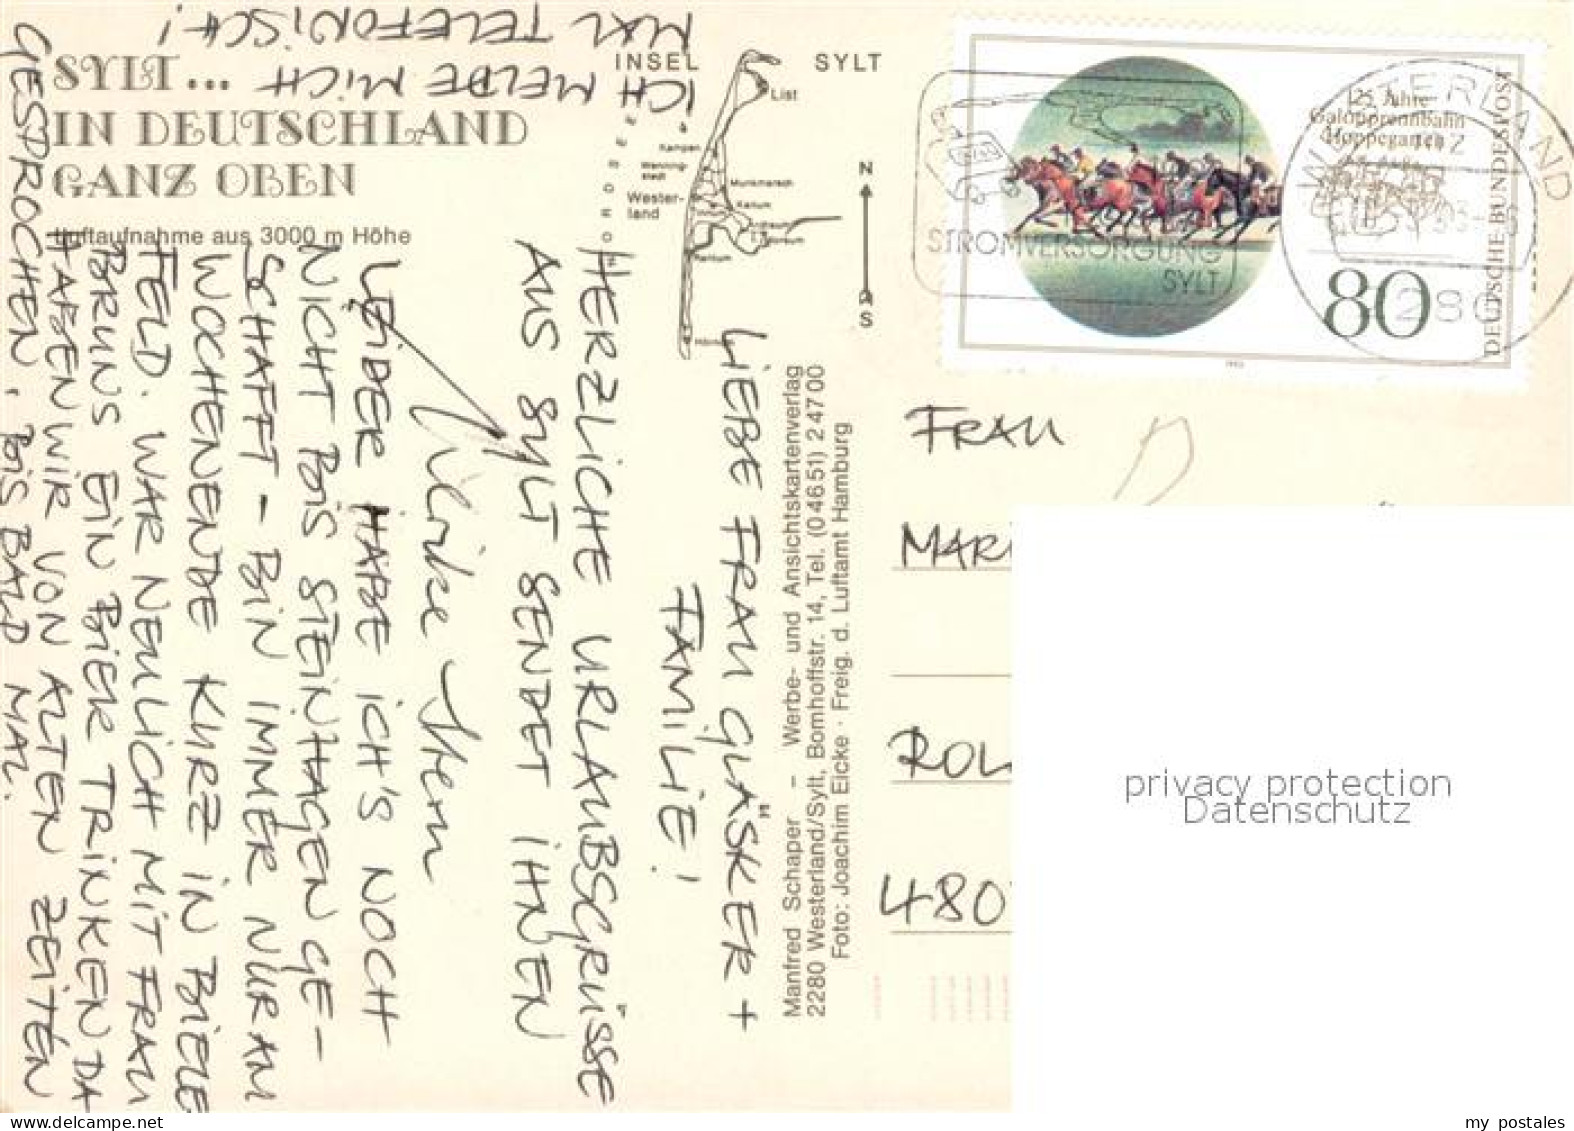 SYLT...
IN DEUTSCHLAND
GANZ OBEN
Luftaufnahme aus 3000 m Höhe
INSEL SYLT
List
Kampen
Wenning-
stedt
Munkmarsch
Wester-
land
Keitum
Rantum
N
S
Manfred Schaper – Werbe- und Ansichtskartenverlag
2280 Westerland/Sylt, Bomhoffstr. 14, Tel. (04651) 24700
Foto: Joachim Eicke · Freig. d. Luftamt Hamburg
LIEBE FRAU GLÄSKER +
FAMILIE!
HERZLICHE URLAUBSGRÜSSE
AUS SYLT SENDET IHNEN
Ulrike Stern
LEIDER HABE ICH'S NOCH
NICHT BIS STEINHAGEN GE-
SCHAFFT – BIN IMMER NUR AM
WOCHENENDE KURZ IN BIELE
FELD. WAR NEULICH MIT FRAU
BRUNS EIN BIER TRINKEN DA
HABEN WIR VON ALTEN ZEITEN
GESPROCHEN, BIS BALD MAL.
ICH MELDE MICH
MAL TELEFONISCH!
125 Jahre
Galopprennbahn
Hoppegarten
80
DEUTSCHE BUNDESPOST
STROMVERSORGUNG
SYLT
WESTERLAND
FRAU
MAR
ROL
480
privacy protection
Datenschutz
my postales